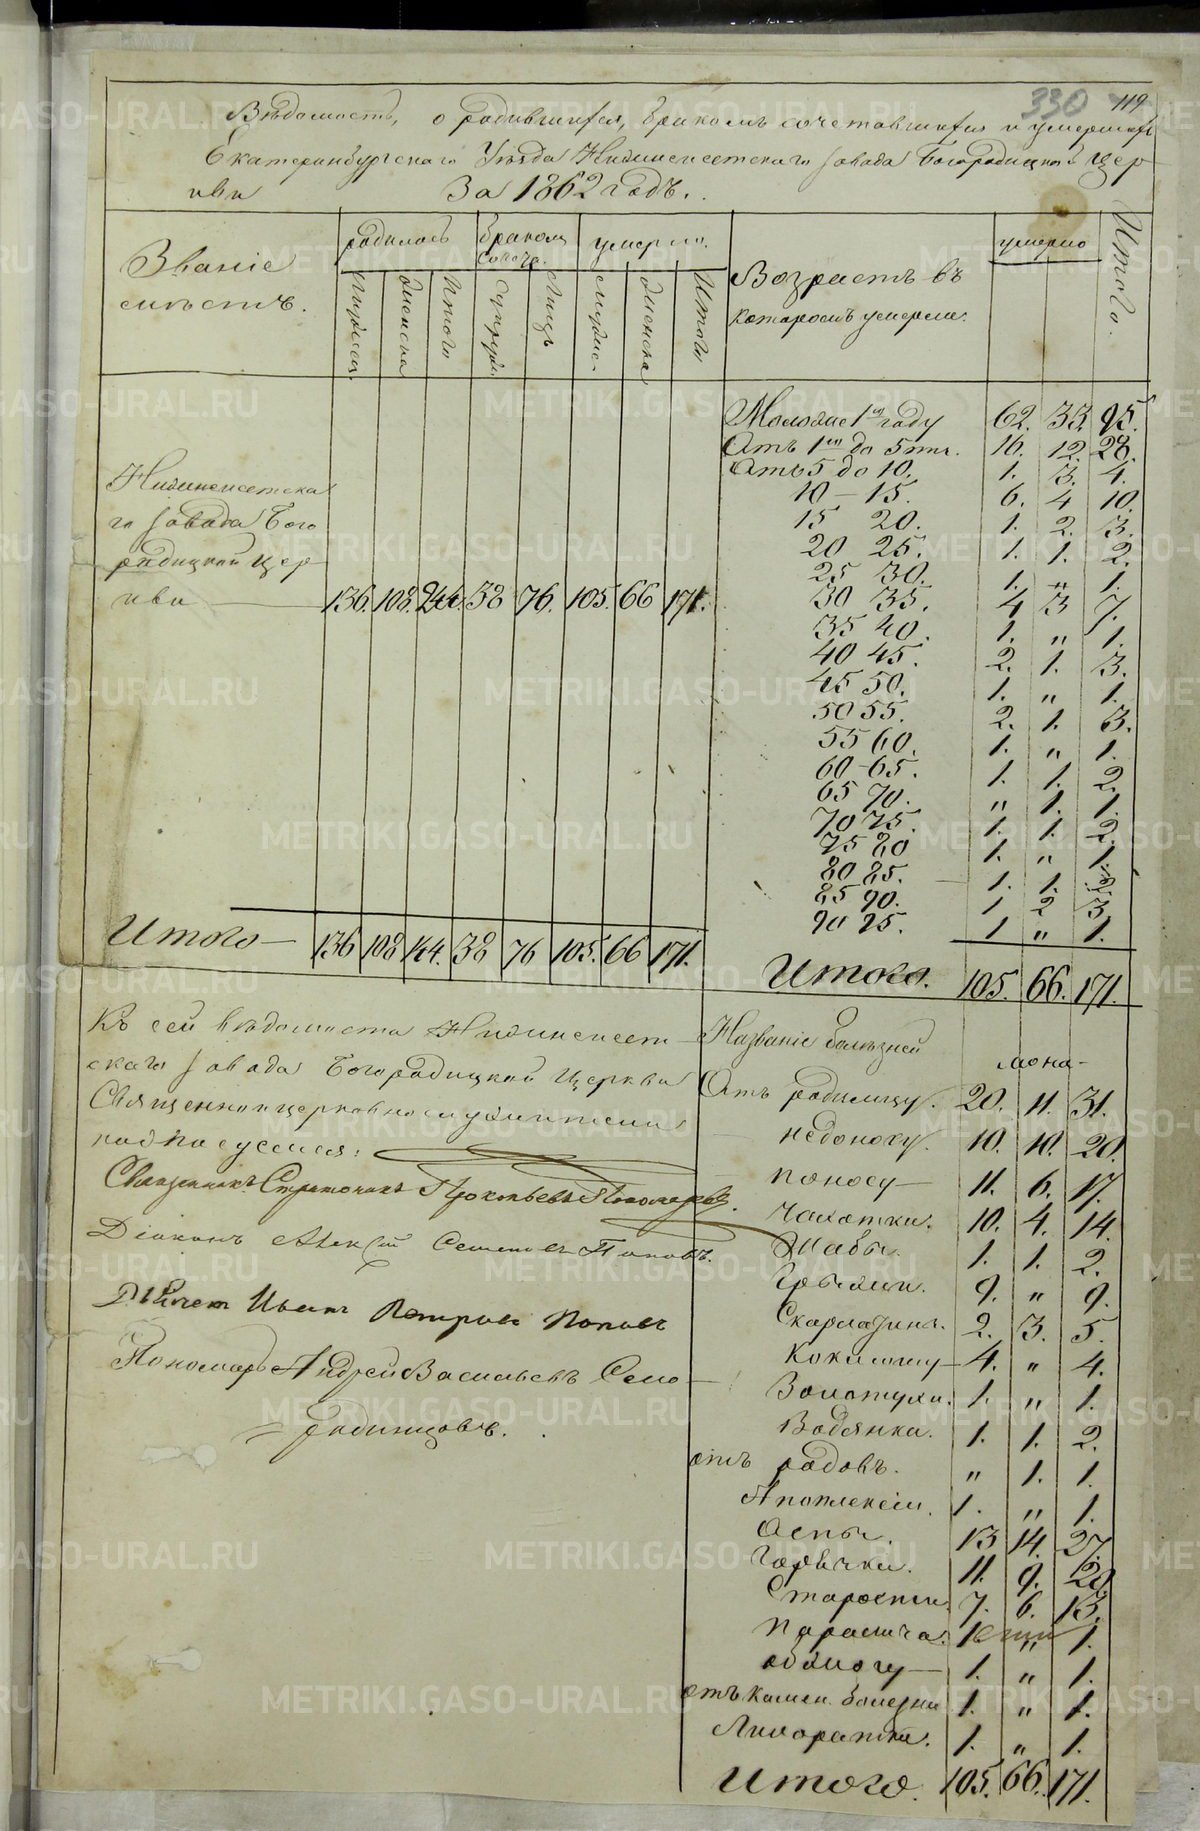 330 119
Вѣдомость, о родившихся, бракомъ сочетавшихся и умершихъ
Екатеринбургскаго Уѣзда Нижнеисетскаго завода Богородицкой Цер
кви За 1862 годъ.
Званіе
мѣстъ.
родилось
бракомъ
сочета.
умерло.
мужеска
женска
Итого
супруж.
Лицъ
мужес.
женска
Итого
Возрастъ въ
которомъ умерли.
умерло
Итого.
Нижнеисетска
го завода Бого
родицкой Цер
кви 136. 108. 244. 38 76. 105. 66 171.
Итого 136 108 144. 38 76 105. 66 171.
Моложе 1го году 62. 33. 95.
Отъ 1го до 5ти. 16. 12. 28.
Отъ 5 до 10. 1. 3. 4.
10 — 15. 6. 4 10.
15 20. 1. 2. 3.
20 25. 1. 1. 2.
25 30. 1. " 1.
30 35. 4 3 7.
35 40. 1. " 1.
40 45. 2. 1. 3.
45 50. 1. " 1.
50 55. 2. 1. 3.
55 60. 1. " 1.
60 — 65. 1. 1. 2.
65 70. " 1. 1.
70 75. 1. 1. 2.
75 80 1. " 1.
80 85. 1. 1. 2.
85 90. 1 2 3.
90 95. 1 " 1.
Итого. 105. 66. 171.
Къ сей вѣдомости Нижнеисет
скаго завода Богородицкой Церкви
Священноицерковнослужители
подписуемся:
Священникъ Стратоникъ Прокопьевъ Пономаревъ.
Діаконъ Алексій Семеновъ Поповъ.
Дьячекъ Иванъ Петровъ Поповъ
Пономарь Андрей Васильевъ Село
Названіе болѣзней
Отъ родимцу. 20. 11. 31.
недоноску. 10. 10. 20.
поносу — 11. 6. 17.
чахотки. 10. 4. 14.
Жабы. 1. 1. 2.
Грыжи. 9. " 9.
Скарлатинъ. 2. 3. 5.
Коклюшу — 4. " 4.
Золотухи. 1. " 1.
Водянка. 1. 1. 2.
отъ родовъ. " 1. 1.
Апоплексіи. 1. " 1.
Оспы. 13 14. 27.
Горячки. 11. 9. 20
Старости. 7. 6. 13.
Паралича. 1 " 1.
обжогу — 1. " 1.
отъ камен. болезни 1. " 1.
Лихорадки. 1. " 1.
Итого. 105. 66. 171.
METRIKI.GASO-URAL.RU